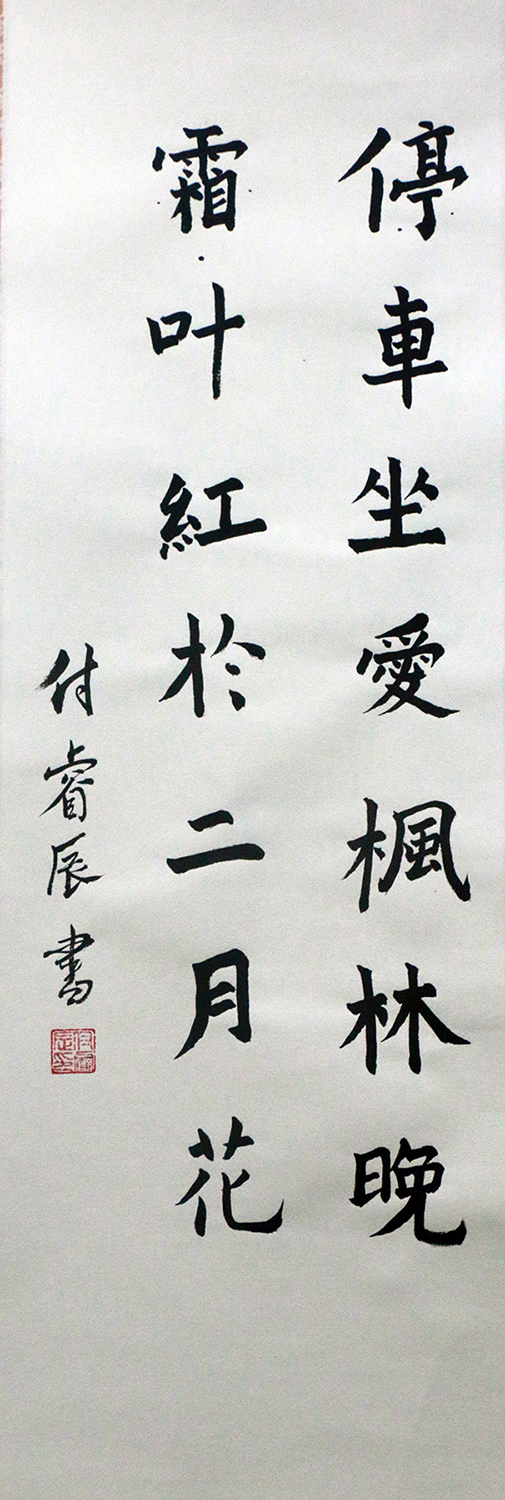 停車坐愛楓林晚
霜叶紅於二月花
付睿辰書